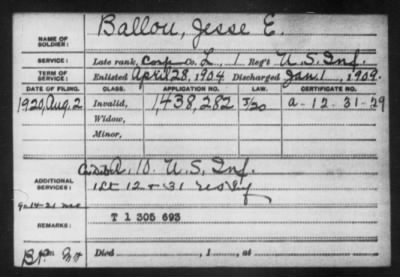 NAME OF SOLDIER: Ballou, Jesse E.
SERVICE: Late rank, Corp Co. L, 1 Reg't U.S. Inf.
TERM OF SERVICE: Enlisted April 28, 1904 Discharged Jan. 1, 1909.
DATE OF FILING. CLASS. APPLICATION NO. LAW. CERTIFICATE NO.
1920, Aug. 2 Invalid, 1,438,282 5/20 a-12-31-29
Widow,
Minor,
ADDITIONAL SERVICES: Co. D, 10. U.S. Inf.
1st 12 + 31
9-14-21
T 1 305 693
Died , 1 , at